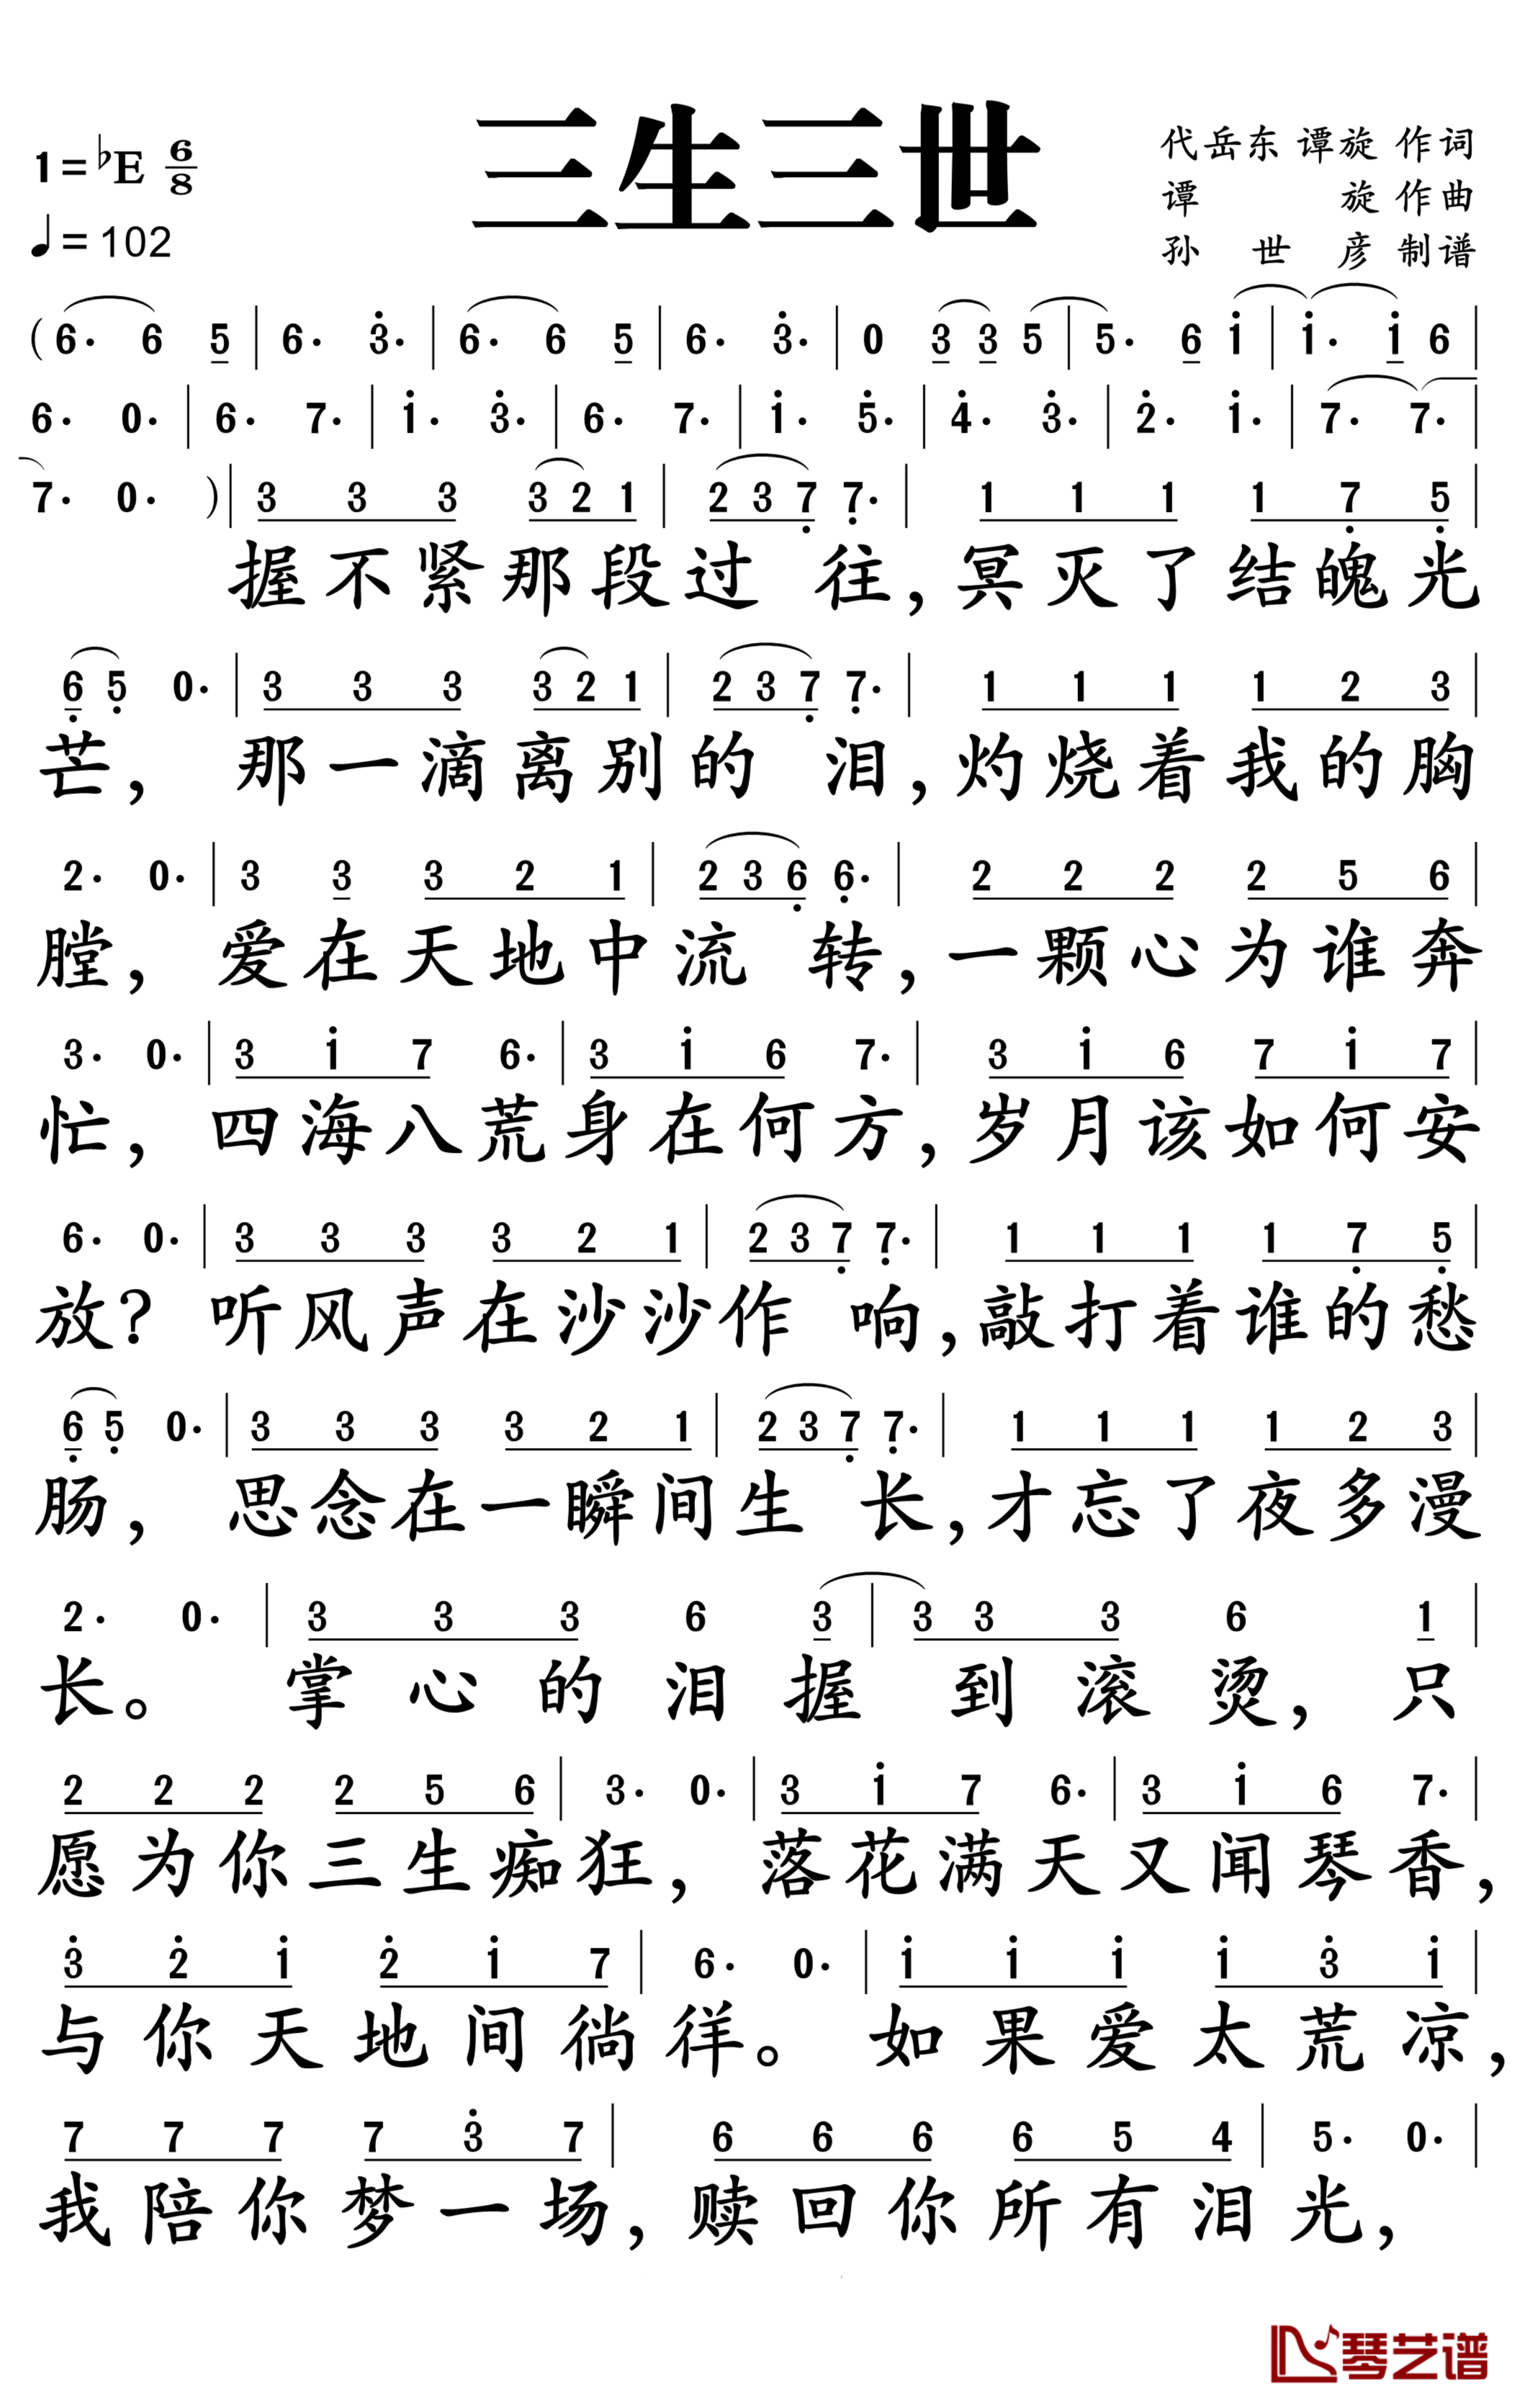 三生三世
1=♭E 6/8
♩=102
代岳东 谭旋 作词
谭 旋 作曲
孙 世 彦 制谱
( 6· 6 5 | 6· 3̇· | 6· 6 5 | 6· 3̇· | 0 3 3 5 | 5· 6 1̇ | 1̇· 1̇ 6 |
6· 0· | 6· 7· | 1̇· 3̇· | 6· 7· | 1̇· 5̇· | 4̇· 3̇· | 2̇· 1̇· | 7· 7· |
7· 0· ) | 3 3 3 3 2 1 | 2 3 7̣ 7̣· | 1 1 1 1 7̣ 5̣ |
握不紧那段过 往，冥灭了结魄光
6̣ 5̣ 0· | 3 3 3 3 2 1 | 2 3 7̣ 7̣· | 1 1 1 1 2 3 |
芒， 那一滴离别的 泪，灼烧着我的胸
2· 0· | 3 3 3 2 1 | 2 3 6̣ 6̣· | 2 2 2 2 5 6 |
膛， 爱在天地中流 转，一颗心为谁奔
3· 0· | 3 1̇ 7 6· | 3 1̇ 6 7· | 3 1̇ 6 7 1̇ 7 |
忙， 四海八荒身在何方，岁月该如何安
6· 0· | 3 3 3 3 2 1 | 2 3 7̣ 7̣· | 1 1 1 1 7̣ 5̣ |
放？ 听风声在沙沙作 响，敲打着谁的愁
6̣ 5̣ 0· | 3 3 3 3 2 1 | 2 3 7̣ 7̣· | 1 1 1 1 2 3 |
肠， 思念在一瞬间生 长，才忘了夜多漫
2· 0· | 3 3 3 6 3 | 3 3 3 6 1 |
长。 掌心的泪握 到滚烫，只
2 2 2 2 5 6 | 3· 0· | 3 1̇ 7 6· | 3 1̇ 6 7· |
愿为你三生痴狂， 落花满天又闻琴香，
3̇ 2̇ 1̇ 2̇ 1̇ 7 | 6· 0· | 1̇ 1̇ 1̇ 1̇ 3̇ 1̇ |
与你天地间徜徉。 如果爱太荒凉，
7 7 7 7 3̇ 7 | 6 6 6 6 5 4 | 5· 0· |
我陪你梦一场，赎回你所有泪光，
琴艺谱